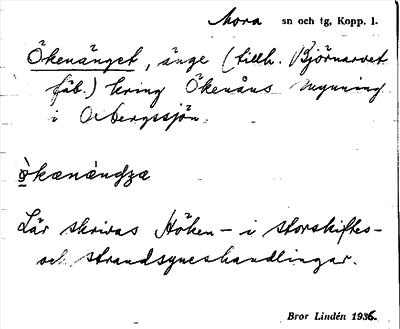 Mora sn och tg, Kopp. l.
Ökenänget, änge (tillh. Björnarvet
fäb.) kring Ökenåns mynning
i Orbergssjön.
Lär skrivas Höken- i storskiftes-
och strandsyneshandlingar.
Bror Lindén 1936.